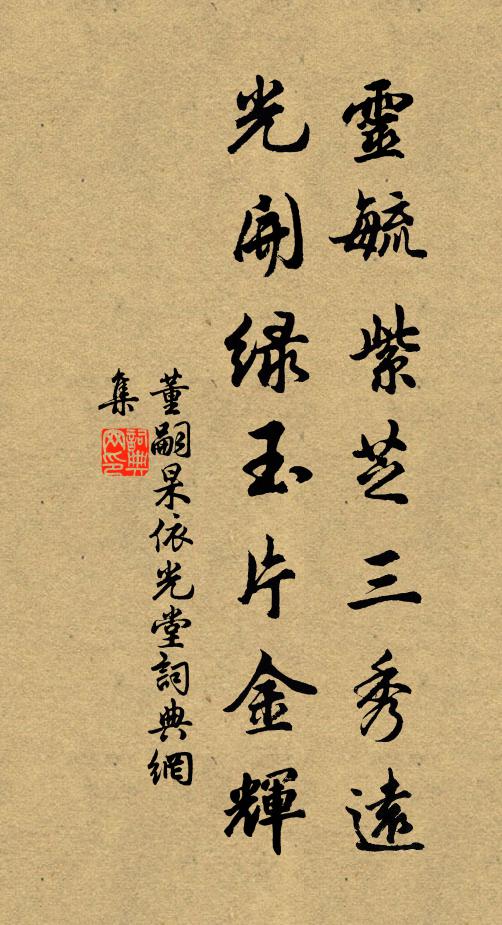 靈毓紫芝三秀遠
光開綠玉片金輝
董嗣杲依光堂詞典網
集
詞典網印